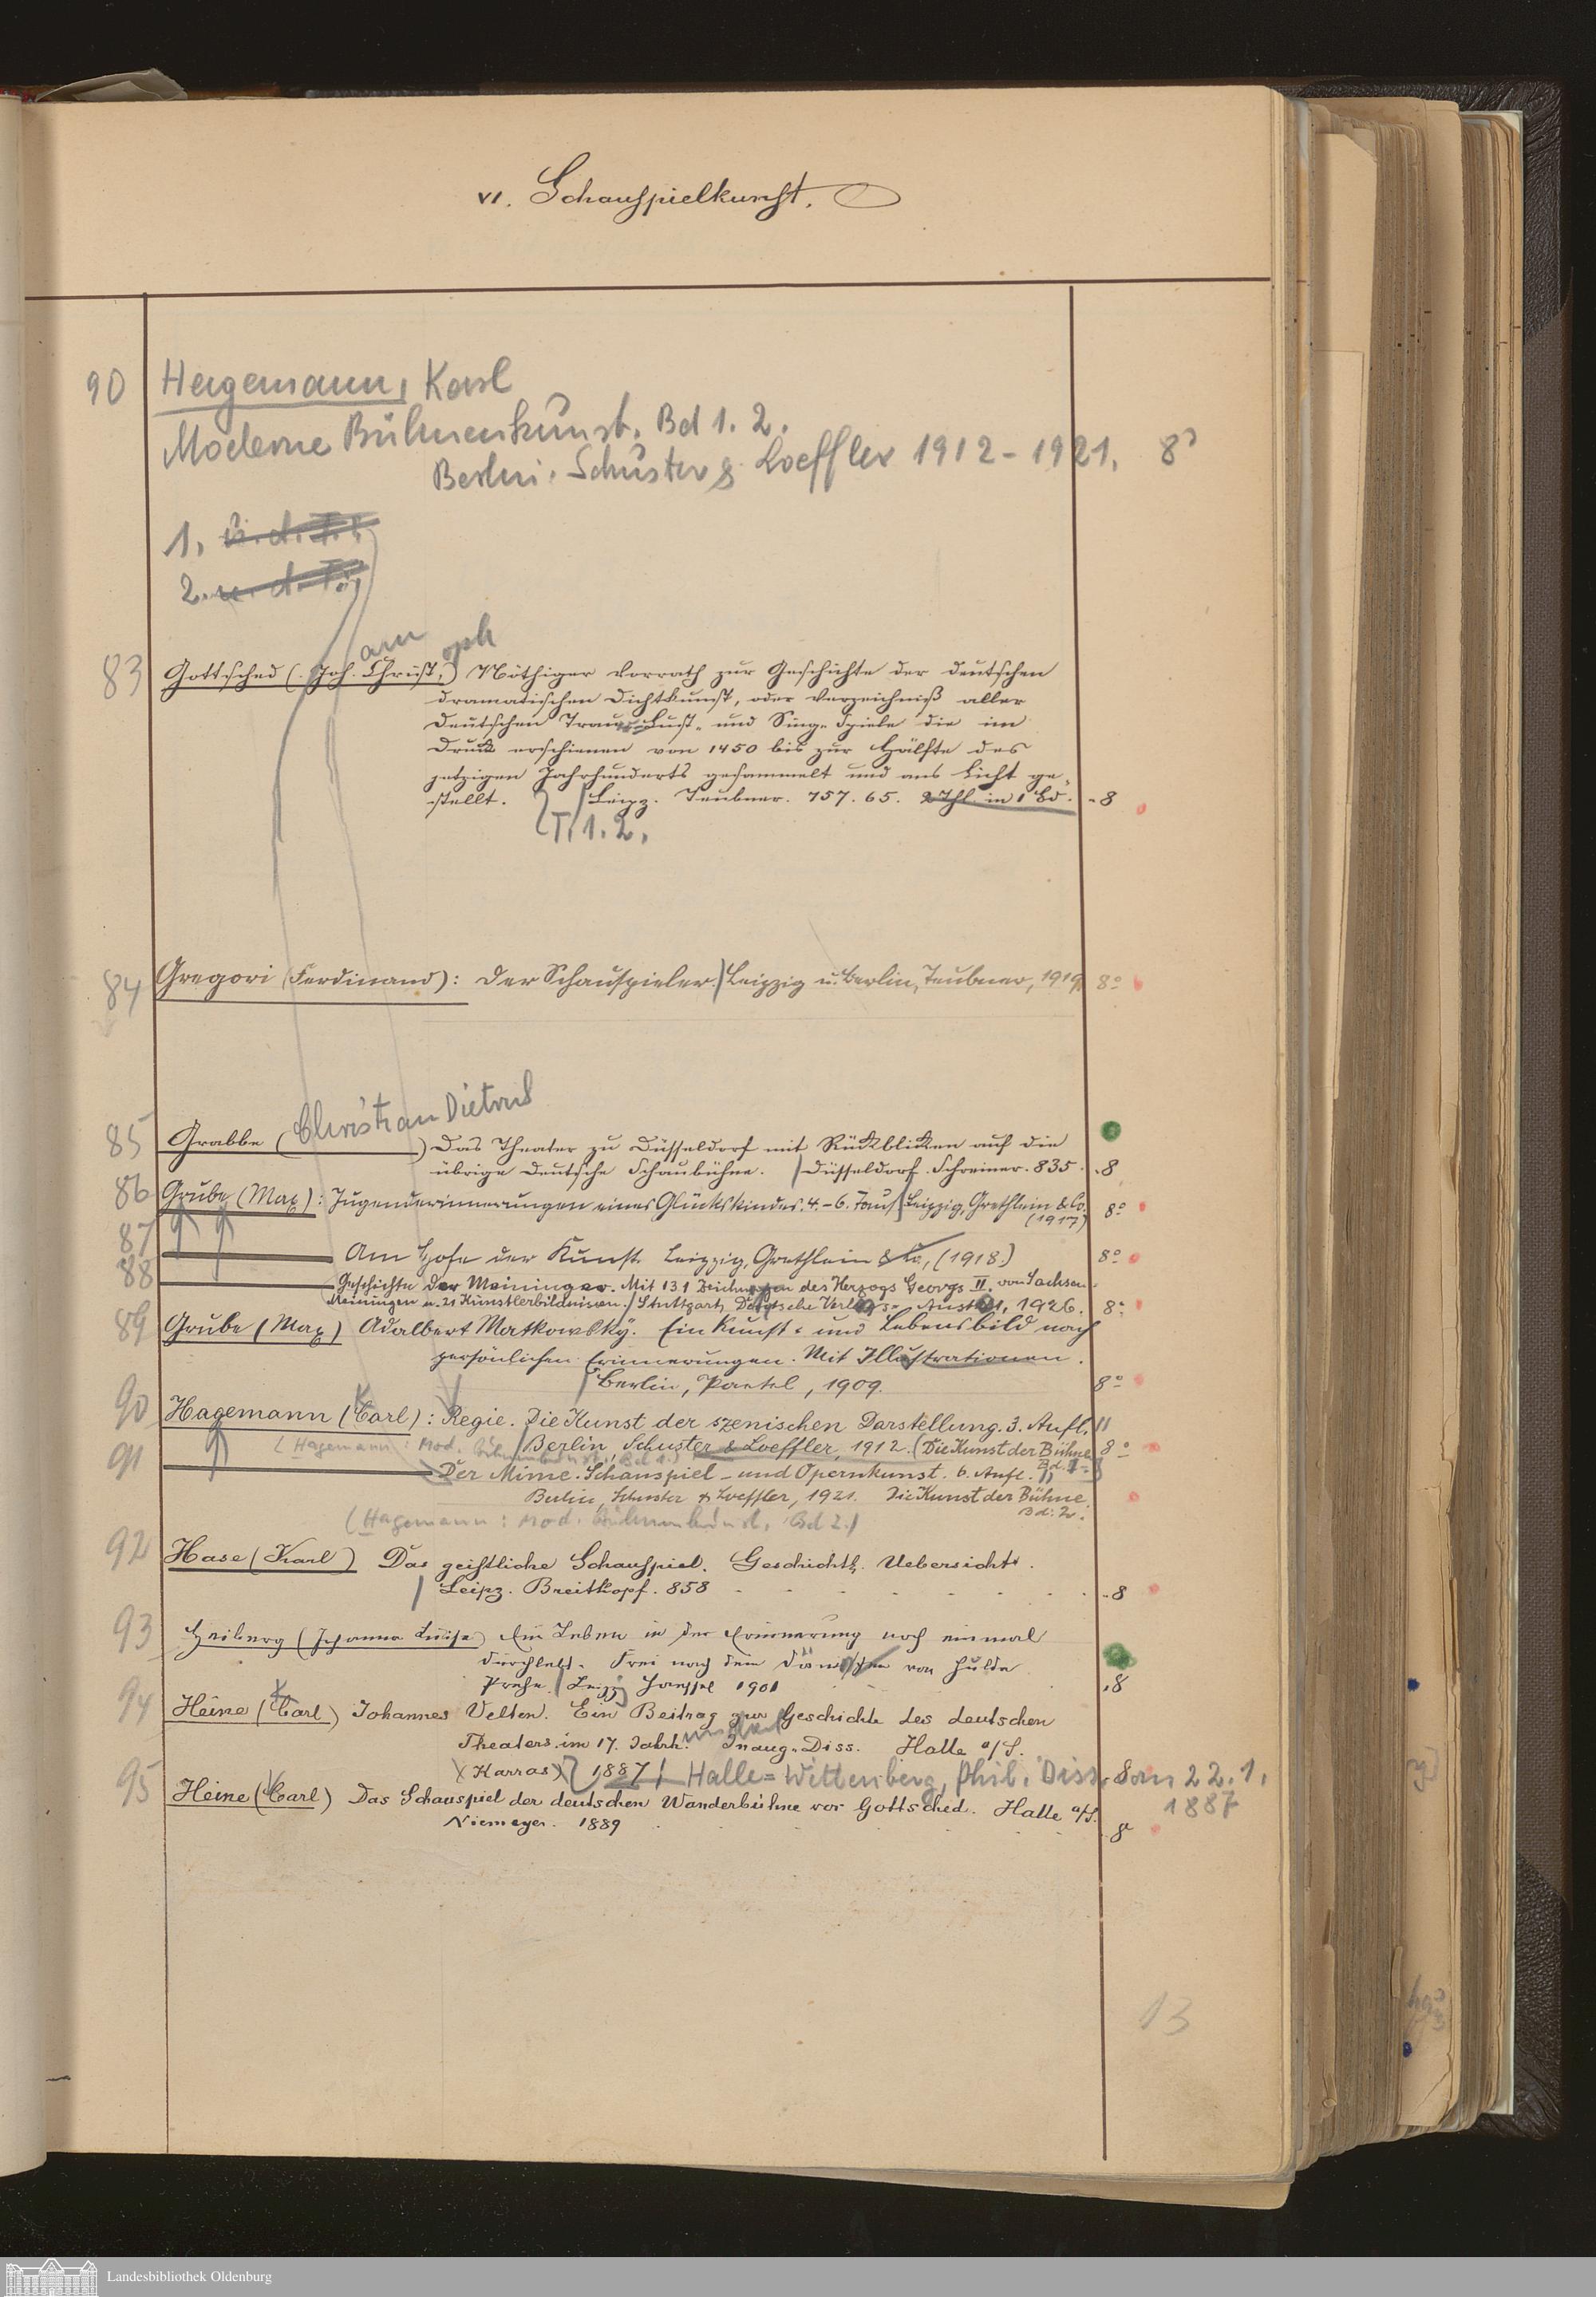 VI. Schauspielkunst.
90 Hagemann, Karl
Moderne Bühnenkunst. Bd 1. 2.
Berlin: Schuster & Loeffler 1912-1921. 8°
1. u. d. T.:
2. u. d. T.:
am oph
83 Gottsched (Joh. Christ.) Nöthiger Vorrath zur Geschichte der deutschen
dramatischen Dichtkunst, oder Verzeichniß aller
Deutschen Trauer- Lust- und Sing-Spiele die im
Druck erschienen von 1450 bis zur Hälfte des
jetzigen Jahrhunderts gesammelt und ans Licht ge-
stellt. Leipz. Teubner. 757. 65. 2 Thl. in 1 Bd. - 8
T. 1. 2.
84 Gregori (Ferdinand): Der Schauspieler. Leipzig u. Berlin, Teubner, 1919 8°
Christian Dietrich
85 Grabbe ( ) Das Theater zu Düsseldorf mit Rückblicken auf die
übrige deutsche Schaubühne. Düsseldorf. Schreiner. 835. - 8
86 Grube (Max): Jugenderinnerungen eines Glückskindes. 4.-6. Taus. Leipzig, Grethlein & Co. 8°
(1917)
87 Am Hofe der Kunst. Leipzig, Grethlein & Co., (1918.) 8°
88 Geschichte der Meininger. Mit 131 Zeichnungen des Herzogs Georgs II. von Sachsen-
Meiningen u. 21 Künstlerbildnissen. Stuttgart, Deutsche Verlags-Anstalt, 1926. 8°
89 Grube (Max) Adalbert Matkowsky. Ein Kunst- und Lebensbild nach
persönlichen Erinnerungen. Mit Illustrationen.
Berlin, Paetel, 1909. 8°
90 Hagemann (Carl): Regie. Die Kunst der szenischen Darstellung. 3. Aufl.
(Hagemann: Mod. Bühnenkunst, Bd 1.) Berlin, Schuster & Loeffler, 1912. (Die Kunst der Bühne 8°
Bd. 1.)
91 Der Mime. Schauspiel- und Opernkunst. 6. Aufl.
Berlin, Schuster & Loeffler, 1921. Die Kunst der Bühne.
Bd: 2.
(Hagemann: Mod. Bühnenkunst, Bd 2.)
92 Hase (Karl) Das geistliche Schauspiel. Geschichtl. Uebersicht.
Leipz. Breitkopf. 858 - 8
93 Heiberg (Johanna Luise) Ein Leben in der Erinnerung noch einmal
durchlebt. Frei nach dem Dänischen von Hulda
Prehn. Leipzig Haessel 1901 - 8
94 Heine (Carl) Johannes Velten. Ein Beitrag zur Geschichte des deutschen
Theaters im 17. Jahrh. Inaug-Diss. Halle a/S.
(Karras) 1887! Halle-Wittenberg, Phil. Diss. vom 22. 1.
1887
95 Heine (Carl) Das Schauspiel der deutschen Wanderbühne vor Gottsched. Halle a/S.
Niemeyer. 1889 8
13
Landesbibliothek Oldenburg